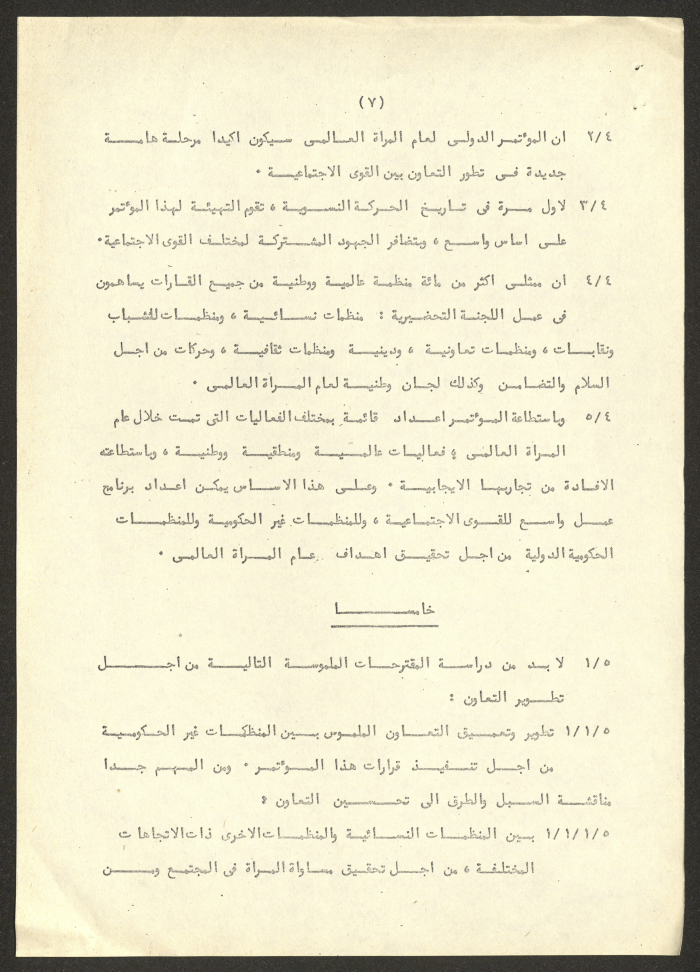 (٧)
٢/٤ ان المؤتمر الدولى لعام المرأة العالمى سيكون اكيدا مرحلة هامة
جديدة فى تطور التعاون بين القوى الاجتماعية ٠
٣/٤ لاول مرة فى تاريخ الحركة النسوية ، تقوم التهيئة لهذا الموتمر
على اساس واسع ، وبتضافر الجهود المشتركة لمختلف القوى الاجتماعية٠
٤/٤ ان ممثلى اكثر من مائة منظمة عالمية ووطنية من جميع القارات يساهمون
فى عمل اللجنة التحضيرية : منظمات نسائية ، ومنظمات للشباب
ونقابات ، ومنظمات تعاونية ، ودينية ومنظمات ثقافية ، وحركات من اجل
السلام والتضامن وكذلك لجان وطنية لعام المرأة العالمى ٠
٥/٤ وباستطاعة المؤتمر اعداد قائمة بمختلف الفعاليات التى تمت خلال عام
المرأة العالمى ؛ فعاليات عالمية ومنطقية ووطنية ، وباستطاعته
الافادة من تجاربها الايجابية ٠ وعلى هذا الاساس يمكن اعداد برنامج
عمل واسع للقوى الاجتماعية ، وللمنظمات غير الحكومية وللمنظمات
الحكومية الدولية من اجل تحقيق اهداف عام المرأة العالمى ٠
خامسا
١/٥ لا بد من دراسة المقترحات الملموسة التالية من اجل
تطوير التعاون :
١/١/٥ تطوير وتعميق التعاون الملموس بين المنظكمات غير الحكومية
من اجل تنفيذ قرارات هذا المؤتمر ٠ ومن المهم جدا
مناقشة السبل والطرق الى تحسين التعاون :
١/١/١/٥ بين المنظمات النسائية والمنظمات الاخرى ذات الاتجاهات
المختلفة ، من اجل تحقيق مساواة المرأة فى المجتمع ومن